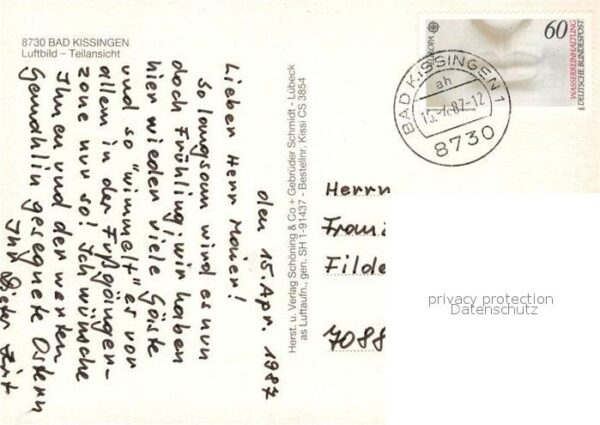 8730 BAD KISSINGEN
Luftbild – Teilansicht
den 15 Apr. 1987
Lieber Herr Maier!
So langsam wird es nun
doch Frühling, wir haben
hier wieder viele Gäste
und so "wimmelt" es vor
allem in der Fußgänger-
zone nur so! Ich wünsche
Ihnen und der werten
Gemahlin gesegnete Ostern
Ihr Dieter
Herst. u. Verlag Schöning & Co + Gebrüder Schmidt - Lübeck
as Luftaufn., gen. SH 1-91437 - Bestellnr. Kissi CS 3854
EUROPA
60
WASSERREINHALTUNG
DEUTSCHE BUNDESPOST
BAD KISSINGEN 1
ah
15.-4.87-12
8730
Herrn
Franz
Filde
7088
privacy protection
Datenschutz